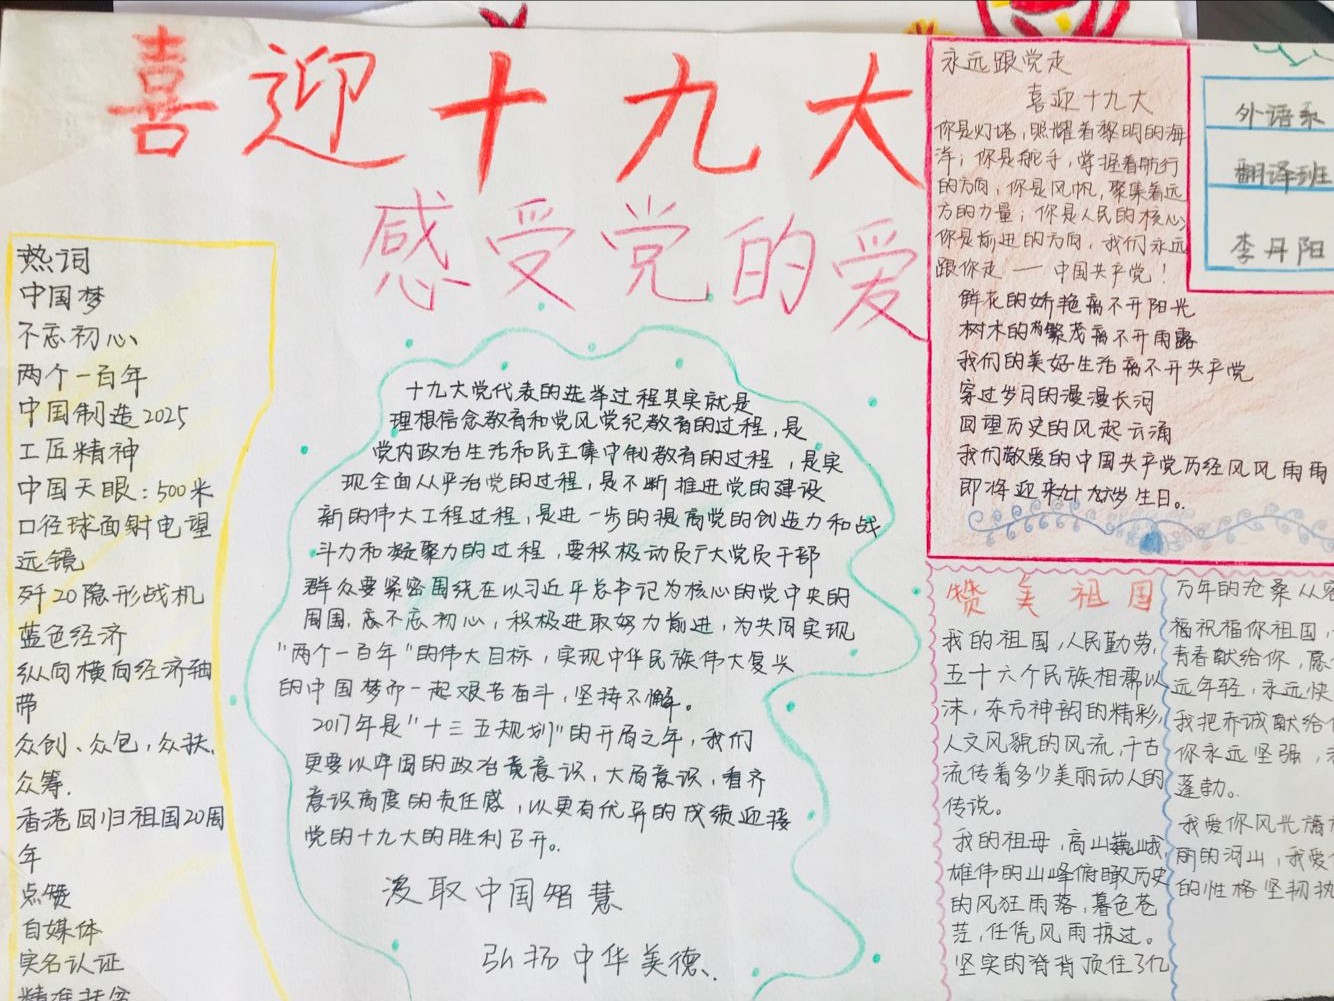 喜迎十九大
感受党的爱
热词
中国梦
不忘初心
两个一百年
中国制造2025
工匠精神
中国天眼：500米
口径球面射电望
远镜
歼20隐形战机
蓝色经济
纵向横向经济轴
带
众创、众包，众扶、
众筹.
香港回归祖国20周
年
点赞
自媒体
实名认证
精准扶贫
十九大党代表的选举过程其实就是
理想信念教育和党风党纪教育的过程，是
党内政治生活和民主集中制教育的过程，是实
现全面从严治党的过程，是不断推进党的建设
新的伟大工程过程，是进一步的提高党的创造力和战
斗力和凝聚力的过程，要积极动员广大党员干部
群众要紧密围绕在以习近平总书记为核心的党中央的
周围，忘不忘初心，积极进取努力前进，为共同实现
“两个一百年”的伟大目标，实现中华民族伟大复兴
的中国梦而一起艰苦奋斗，坚持不懈。
2017年是“十三五规划”的开局之年，我们
更要以牢固的政治意识，大局意识，看齐
意识高度的责任感，以更有优异的成绩迎接
党的十九大的胜利召开。
汲取中国智慧
弘扬中华美德、
永远跟党走
喜迎十九大
你是灯塔，照耀着黎明的海
洋；你是舵手，掌握着航行
的方向；你是风帆，聚集着远
方的力量；你是人民的核心，
你是前进的方向，我们永远
跟你走——中国共产党！
鲜花的娇艳离不开阳光
树木的繁茂离不开雨露
我们的美好生活离不开共产党
穿过岁月的漫漫长河
回望历史的风起云涌
我们敬爱的中国共产党历经风风雨雨
即将迎来岁生日。
外语系
翻译班
李丹阳
赞美祖国
我的祖国，人民勤劳，
五十六个民族相濡以
沫，东方神韵的精彩，
人文风貌的风流，千古
流传着多少美丽动人的
传说。
我的祖母，高山巍峨，
雄伟的山峰俯瞰历史
的风狂雨落，暮色苍
茫，任凭风雨掠过。
坚实的脊背顶住了亿
万年的沧桑从容
福祝福你祖国，
青春献给你，愿
远年轻，永远快
我把赤诚献给
你永远坚强，
蓬勃。
我爱你风光旖
丽的河山，我爱
的性格坚韧执